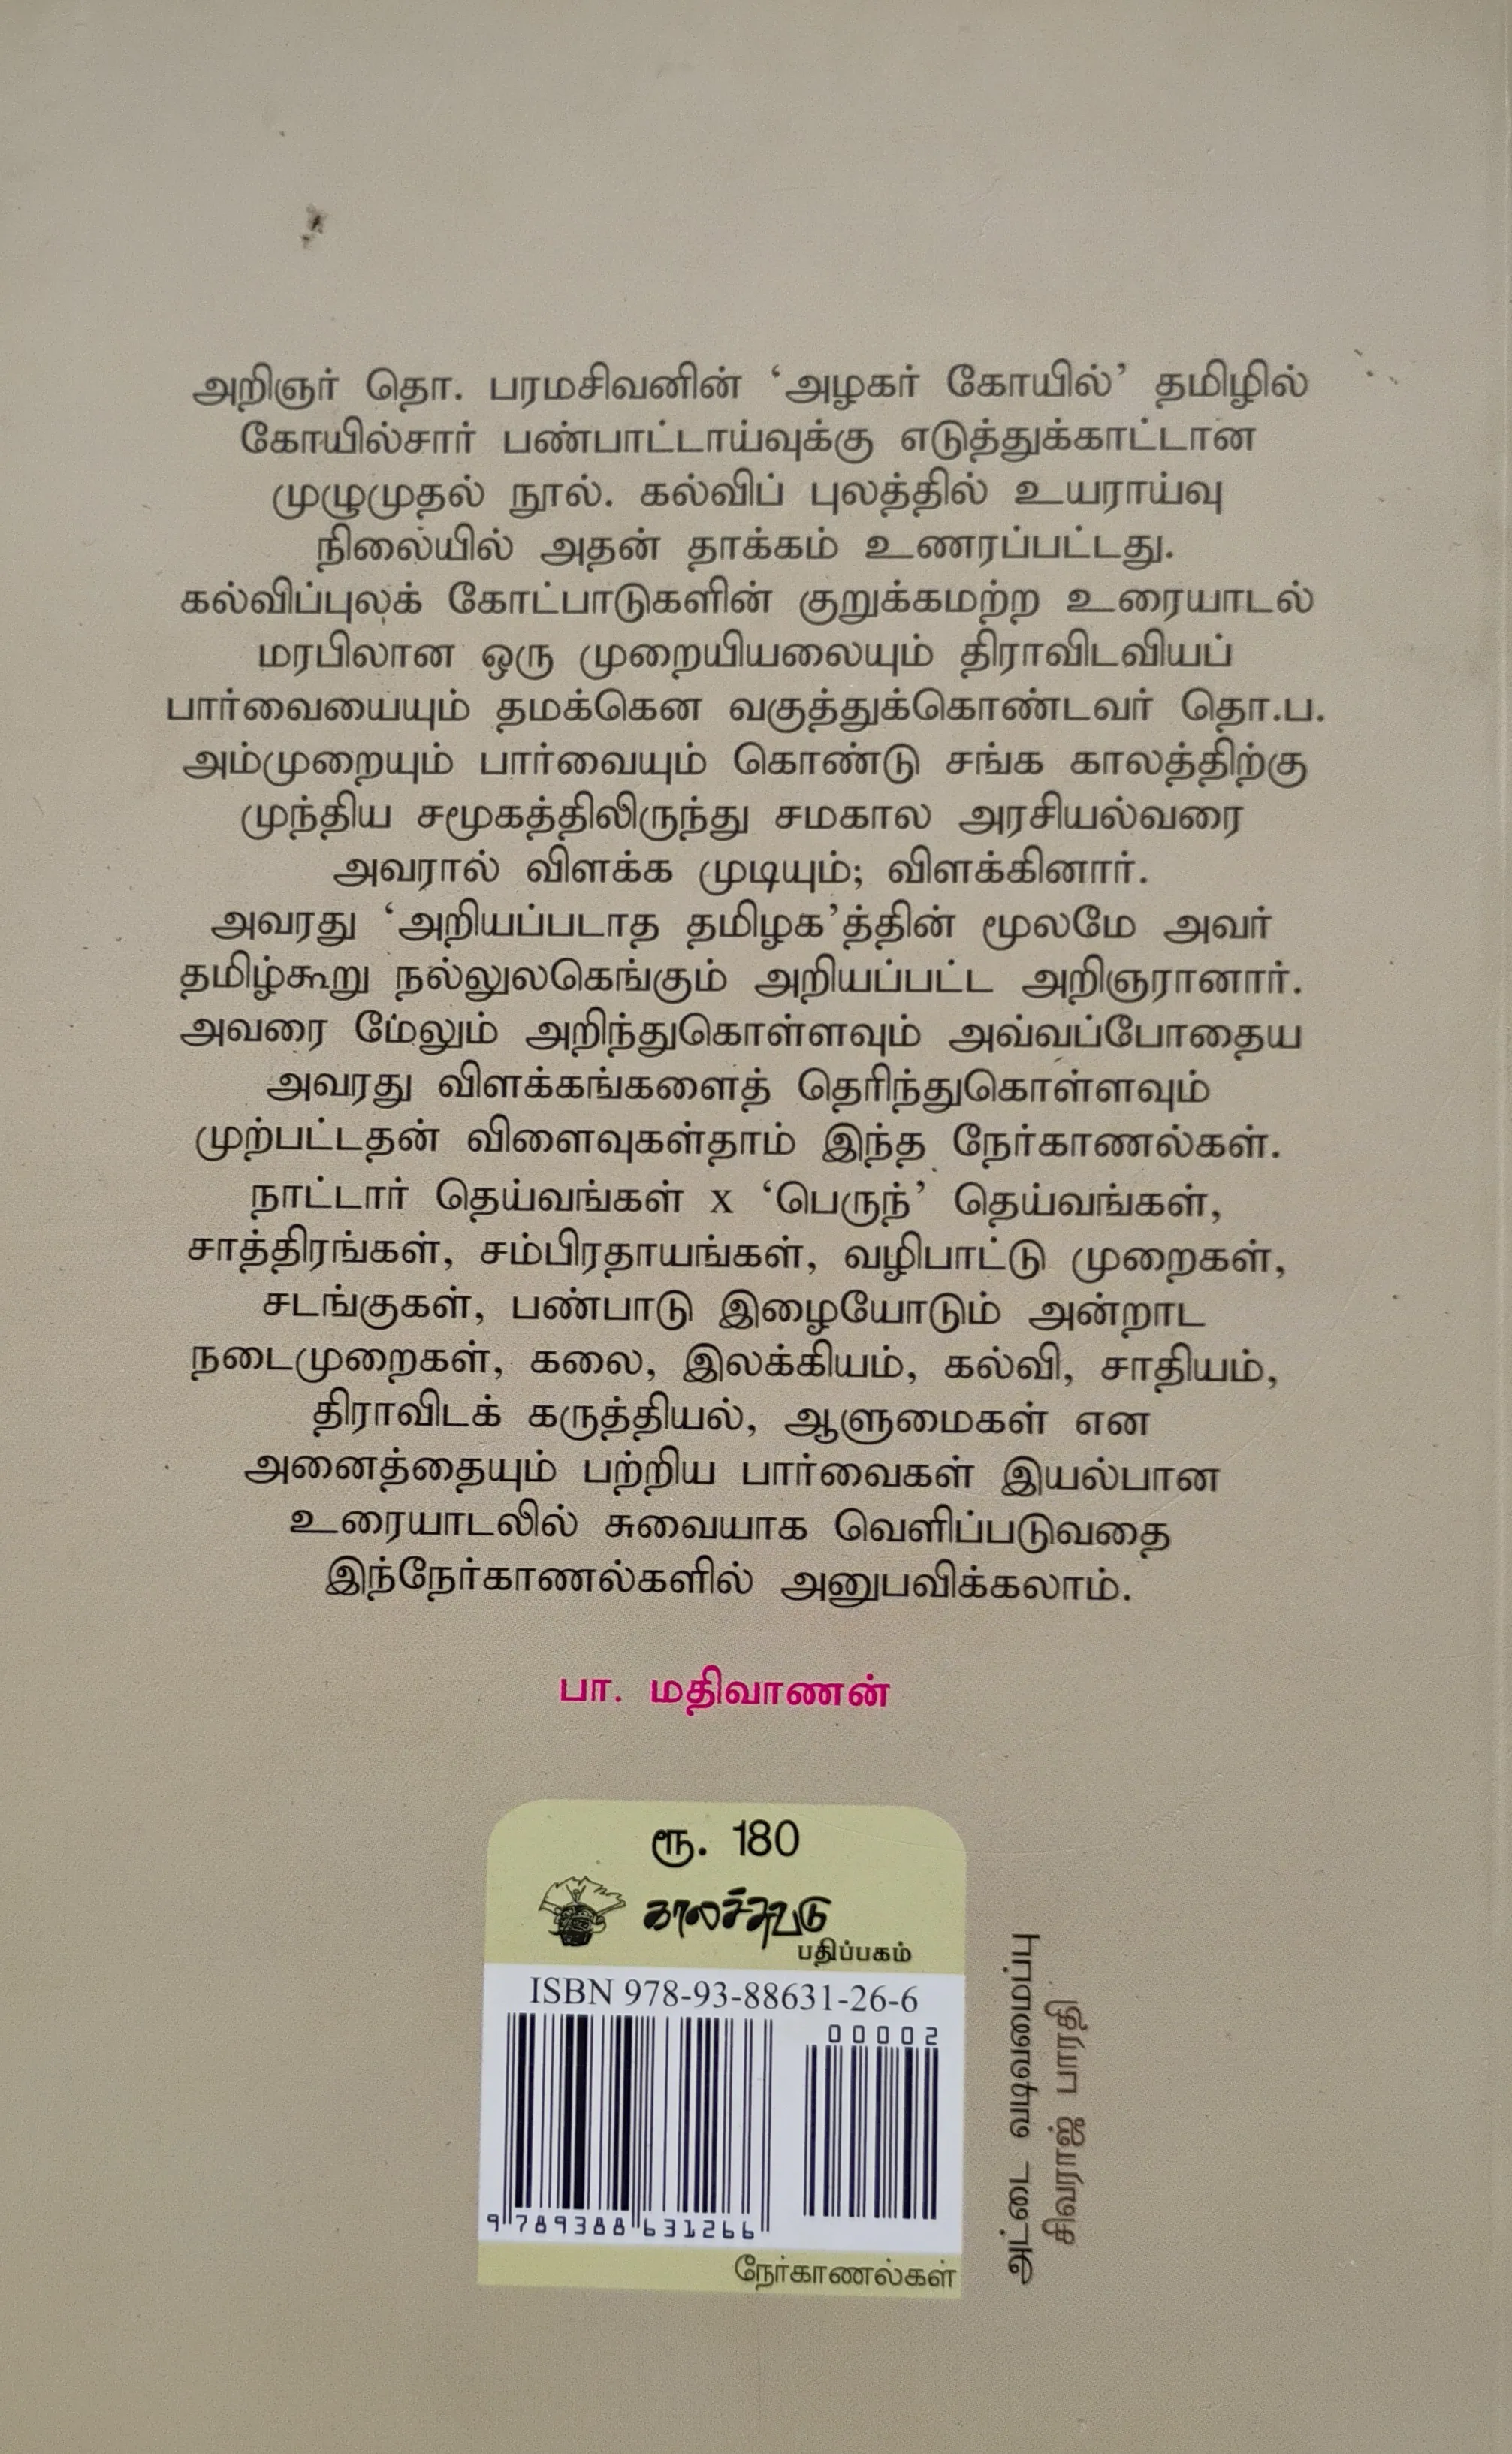 அறிஞர் தொ. பரமசிவனின் ‘அழகர் கோயில்’ தமிழில்
கோயில்சார் பண்பாட்டாய்வுக்கு எடுத்துக்காட்டான
முழுமுதல் நூல். கல்விப் புலத்தில் உயராய்வு
நிலையில் அதன் தாக்கம் உணரப்பட்டது.
கல்விப்புலக் கோட்பாடுகளின் குறுக்கமற்ற உரையாடல்
மரபிலான ஒரு முறையியலையும் திராவிடவியப்
பார்வையையும் தமக்கென வகுத்துக்கொண்டவர் தொ.ப.
அம்முறையும் பார்வையும் கொண்டு சங்க காலத்திற்கு
முந்திய சமூகத்திலிருந்து சமகால அரசியல்வரை
அவரால் விளக்க முடியும்; விளக்கினார்.
அவரது ‘அறியப்படாத தமிழக’த்தின் மூலமே அவர்
தமிழ்கூறு நல்லுலகெங்கும் அறியப்பட்ட அறிஞரானார்.
அவரை மேலும் அறிந்துகொள்ளவும் அவ்வப்போதைய
அவரது விளக்கங்களைத் தெரிந்துகொள்ளவும்
முற்பட்டதன் விளைவுகள்தாம் இந்த நேர்காணல்கள்.
நாட்டார் தெய்வங்கள் x ‘பெருந்’ தெய்வங்கள்,
சாத்திரங்கள், சம்பிரதாயங்கள், வழிபாட்டு முறைகள்,
சடங்குகள், பண்பாடு இழையோடும் அன்றாட
நடைமுறைகள், கலை, இலக்கியம், கல்வி, சாதியம்,
திராவிடக் கருத்தியல், ஆளுமைகள் என
அனைத்தையும் பற்றிய பார்வைகள் இயல்பான
உரையாடலில் சுவையாக வெளிப்படுவதை
இந்நேர்காணல்களில் அனுபவிக்கலாம்.
பா. மதிவாணன்
ரூ. 180
காலச்சுவடு
பதிப்பகம்
ISBN 978-93-88631-26-6
00002
9 789388 631266
நேர்காணல்கள்
அட்டை வடிவமைப்பு
சிவராஜ் பாரதி